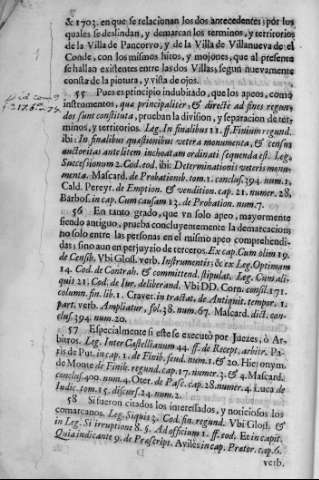 & 1703. en que se relacionan los dos antecedentes; por los
quales se deslindan, y demarcan los terminos, y territorios
de la Villa de Pancorvo, y de la Villa de Villanueva de el
Conde, con los mismos hitos, y mojones, que al presente
se hallan existentes entre las dos Villas, segun nuevamente
consta de la pintura, y vista de ojos.
55 Pues es principio indubitado, que los apeos, como
instrumentos, que principaliter, & directè ad fines regun-
dos sunt constituta, prueban la division, y separacion de ter-
minos, y territorios. Leg. In finalibus 11. ff. Finium regund.
ibi: In finalibus quæstionibus vetera monumenta, & census
auctoritas ante litem inchoatam ordinati sequenda est. Leg.
Successionum 2. Cod. eod. ibi: Determinationis veteris monu-
menta. Mascard. de Probationib. tom. 1. conclus. 394. num. 1.
Cald. Pereyr. de Emption. & vendition. cap. 21. numer. 28.
Barbos. in cap. Cum causam 13. de Probation. num. 7.
56 En tanto grado, que vn solo apeo, mayormente
siendo antiguo, prueba concluyentemente la demarcacion,
no solo entre las personas en el mismo apeo comprehendi-
das; sino aun en perjuyzio de terceros. Ex cap. Cum olim 19.
de Censib. Vbi Gloss. verb. Instrumentis: & ex Leg. Optimam
14. Cod. de Contrah. & committend. stipulat. Leg. Cum ali-
quis 21. Cod. de Iur. deliberand. Vbi DD. Corn. consil. 171.
column. fin. lib. 1. Cravet. in tractat. de Antiquit. tempor. 1.
part. verb. Ampliatur, fol. 38. num. 67. Mascard. dict. con-
clus. 394. num. 20.
57 Especialmente si este se executò por Juezes, ò Ar-
bitros. Leg. Inter Castellianum 44. ff. de Recept. arbitr. Pa-
ris de Put. in cap. 1. de Finib. feud. num. 1. & 20. Hieronym.
de Monte de Finib. regund. cap. 17. numer. 3. & 4. Mascard.
conclus. 400. num. 4. Oter. de Pasc. cap. 28. numer. 4. Luca de
Iudic. tom. 15. discurs. 24. num. 2.
58 Si fueron citados los interesados, y noticiosos los
comarcanos. Leg. Siquis 3. Cod. fin. regund. Vbi Gloss. &
in Leg. Si irruptione 8. §. Ad officium 1. ff. eod. Et in capit.
Quia indicante 9. de Præscript. Ayllòs in cap. Prator. cap. 6.
verb.